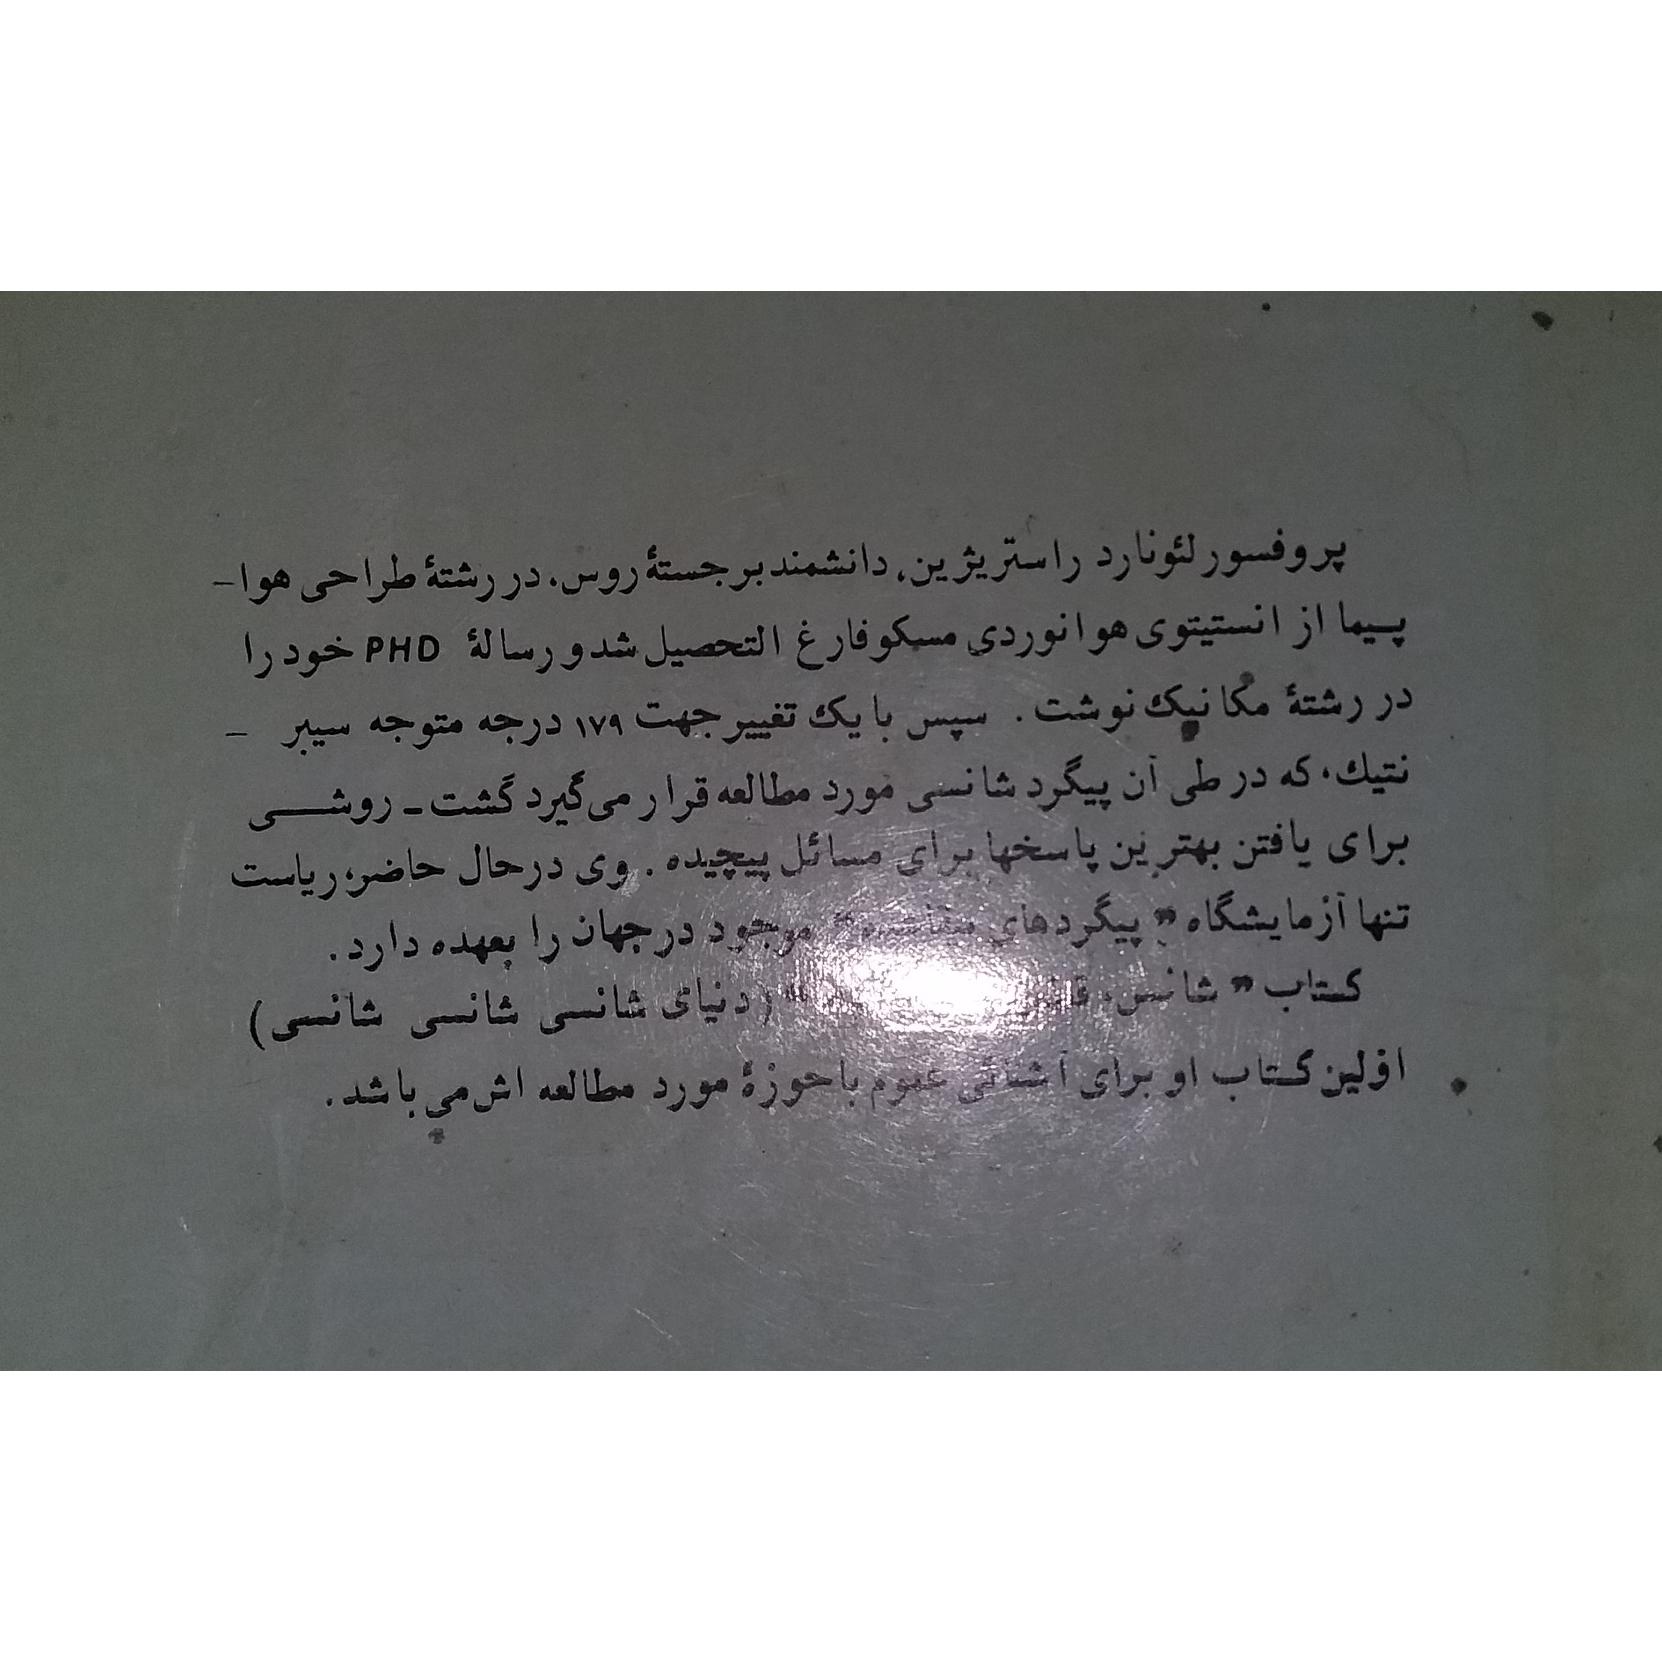 پروفسور لئونارد راستریژین، دانشمند برجستهٔ روس، در رشتهٔ طراحی هوا-
پیما از انستیتوی هوانوردی مسکو فارغ التحصیل شد و رسالهٔ PHD خود را
در رشتهٔ مکانیک نوشت. سپس با یک تغییر جهت ۱۷۹ درجه متوجه سیبر -
نتیک، که در طی آن پیگرد شانسی مورد مطالعه قرار می‌گیرد گشت ـ روشی
برای یافتن بهترین پاسخها برای مسائل پیچیده. وی در حال حاضر، ریاست
تنها آزمایشگاه " پیگردهای موجود در جهان را بعهده دارد.
کتاب " شانس، (دنیای شانسی شانسی شانسی)
اولین کتاب او برای آشنائی عموم با حوزهٔ مورد مطالعه اش می باشد.